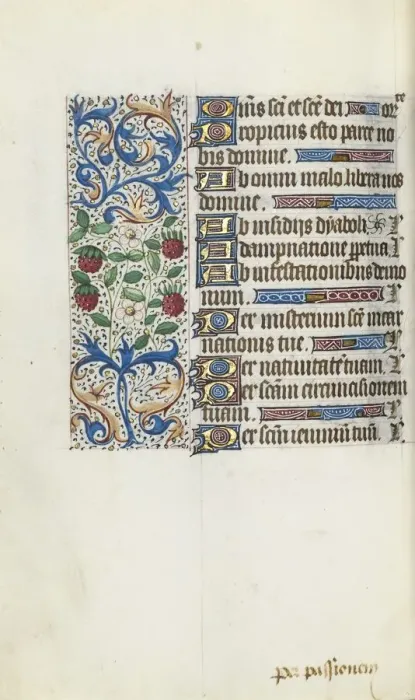 Om̄s sc̄i et sc̄e dei or̄
Propicius esto parce no
bis domine.
Ab omni malo libera nos
domine.
Ab insidijs dyaboli
A dampnatione perpetua
Ab infestationibus demo
num.
Per misterium sc̄e incar
nationis tue.
Per natiuitatē tuam.
Per sc̄am circuncisionem
tuam.
Per sc̄m ieiuniū tuū.
per passionem